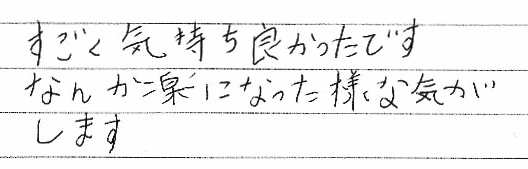 すごく気持ち良かったです
なんか楽になった様な気が
します